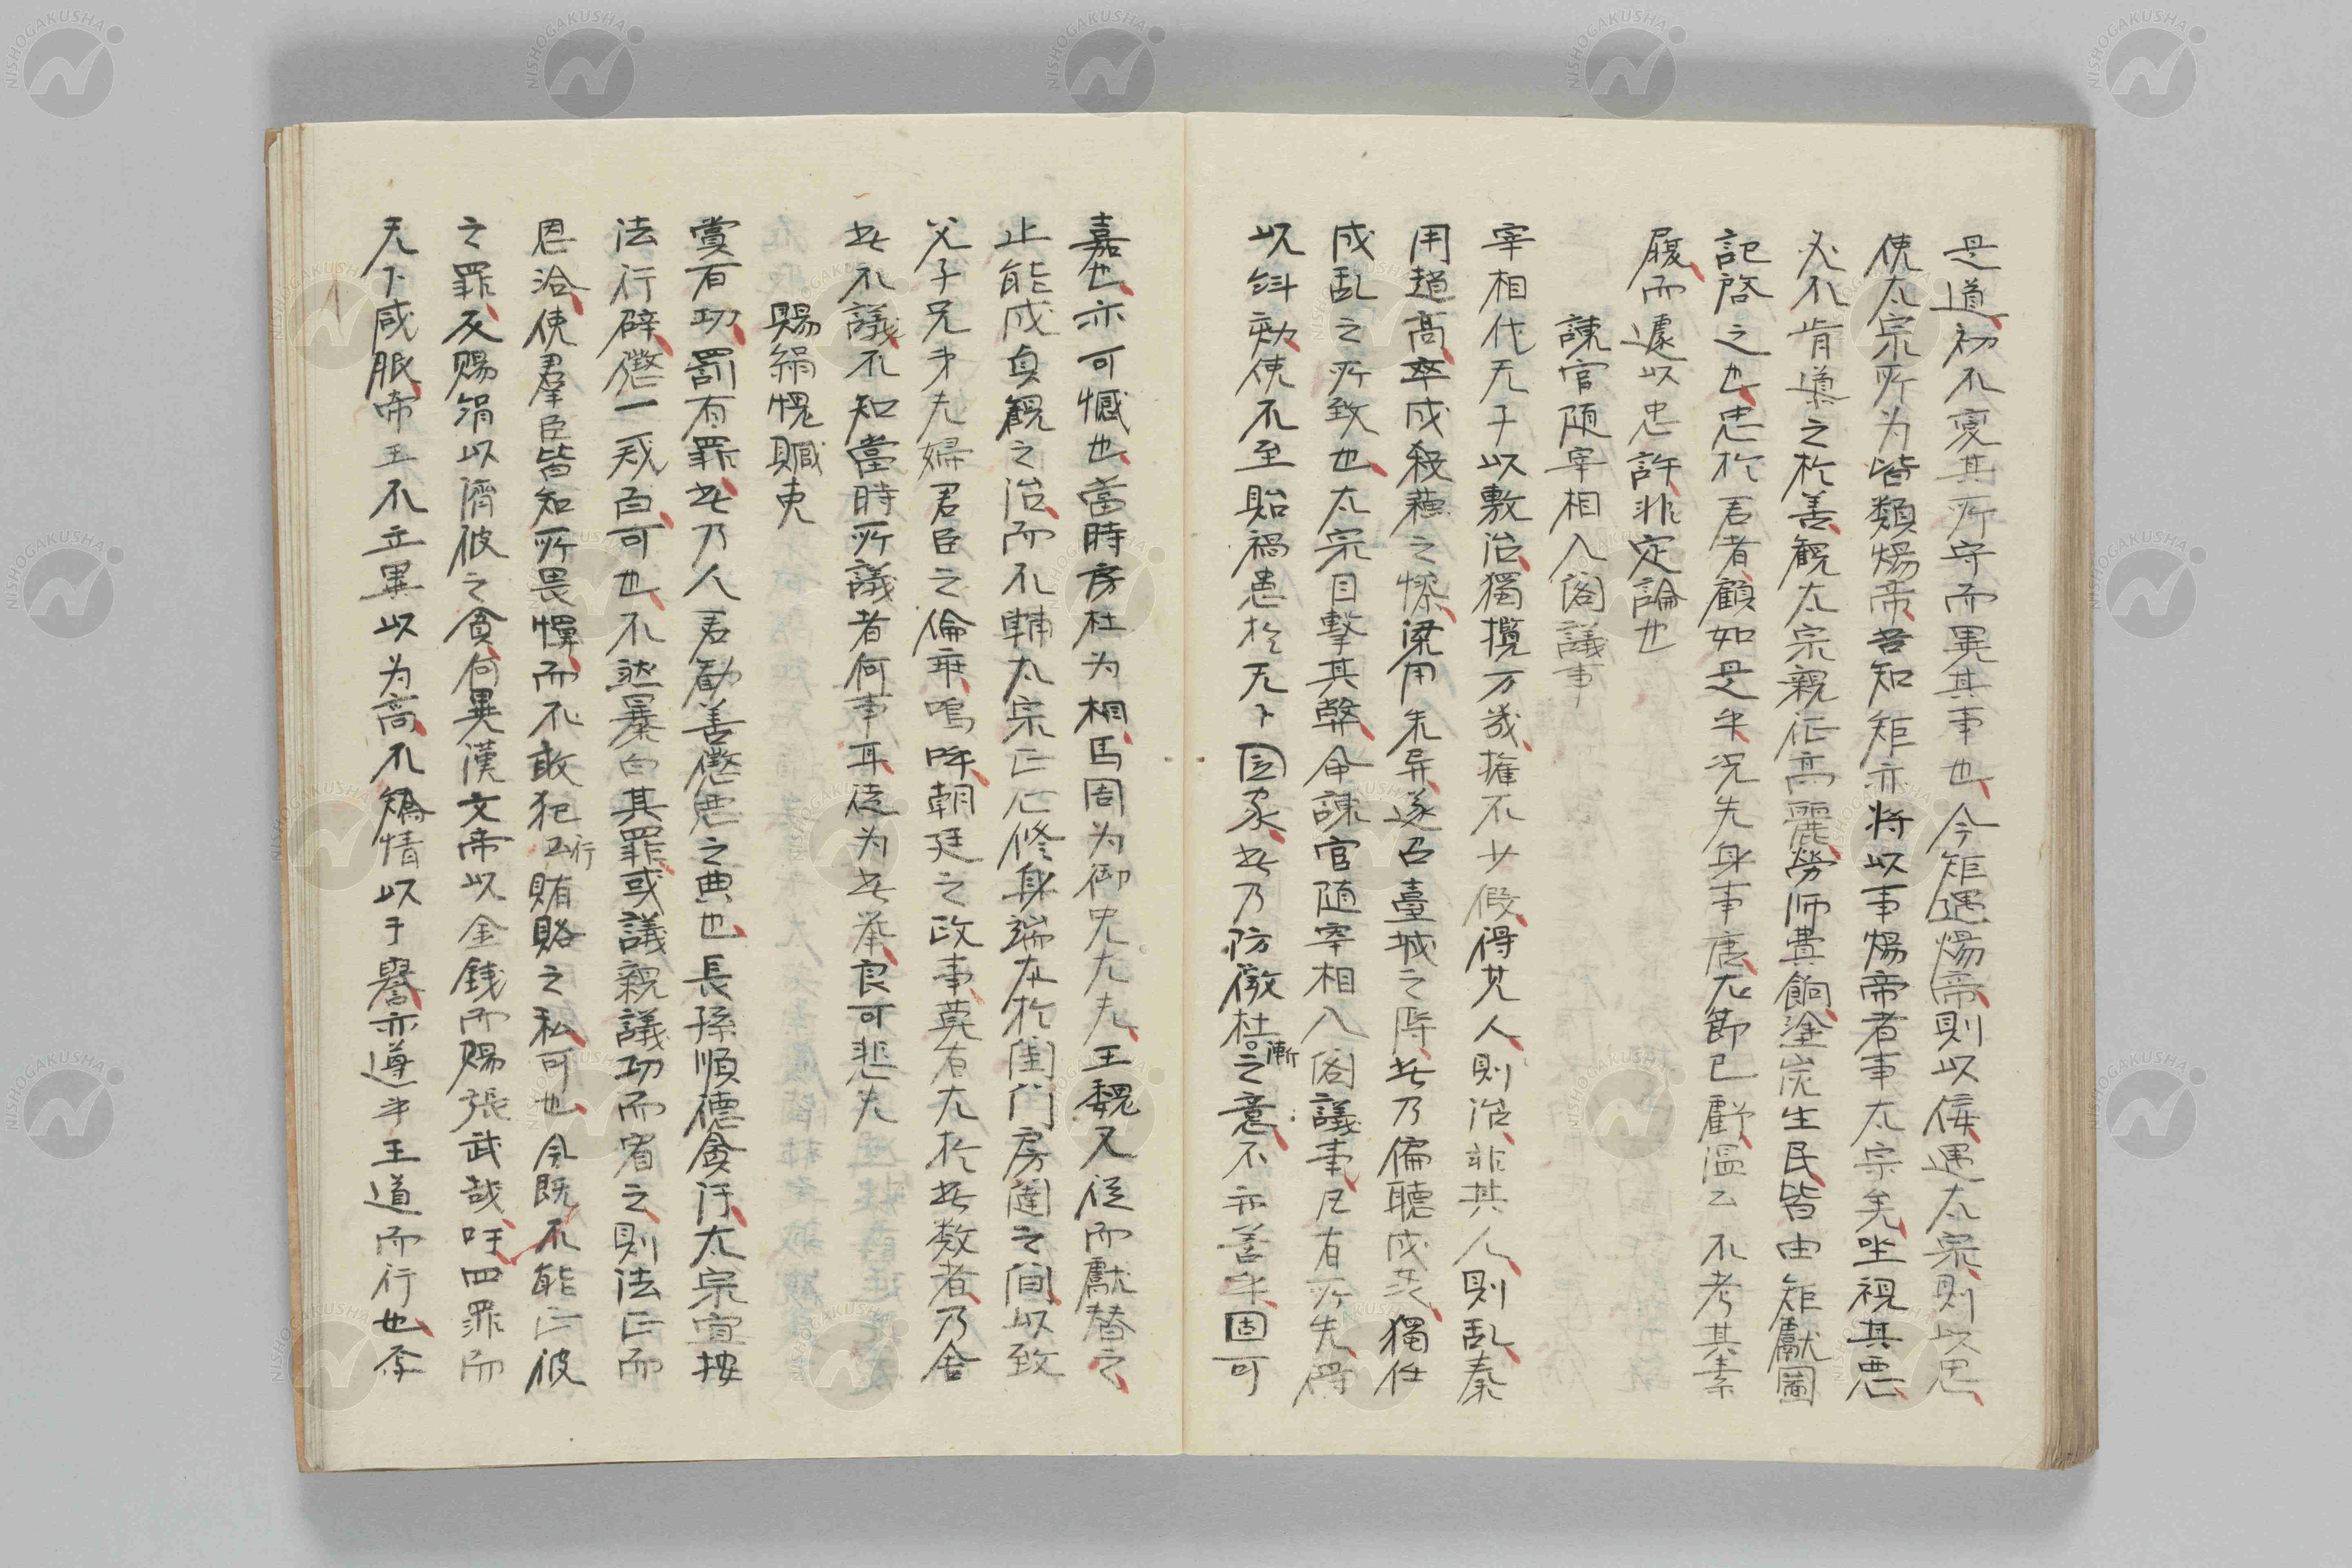 是道初不変其所守而異其事也今矩遇煬帝則以佞遇太宗則以忠
使太宗所为皆類煬帝吾知矩亦将以事煬帝者事太宗矣坐視其悪
必不肯導之於善観太宗親征高麗勞师費餉塗炭生民皆由矩獻圖
記啓之也忠於君者顧如是乎况先身事唐大節已虧區〻不考其素
履而遽以忠許非定論也
諌官随宰相入閣議事
宰相代天子以敷治獨攬万幾權不少假得其人則治非其人則乱秦
用趙髙卒成殺蘓之惨梁用朱异遂召臺城之辱此乃偏聴成其獨任
成乱之所致也太宗目撃其弊令諌官随宰相入閣議事凡有所失得
以糾劾使不至貽禍患於天下国家此乃防微杜漸之意不亦善乎固可
嘉也亦可憾也當時房杜为相馬周为御史大夫王魏又従而獻替之
止能成貞観之治而不輔太宗正心修身端本於閨门房闥之间以致
父子兄弟夫婦君臣之倫乖嗚呼朝廷之政事莫有大於此数者乃舎
此不議不知當時所議者何事耳徒为此举良可悲夫
賜絹愧贓吏
賞有功罰有罪此乃人君勧善懲悪之典也長孫順徳貪汙太宗宜按
法行辟懲一戒百可也不然暴白其罪或議親議功而宥之則法正而
恩洽使羣臣皆知所畏憚而不敢犯行賄賂之私可也今既不能正彼
之罪反赐絹以濟彼之貪何異漢文帝以金銭而赐張武哉吁四罪而
天下咸服帝王不立異以为高不矯情以干譽亦遵乎王道而行也李